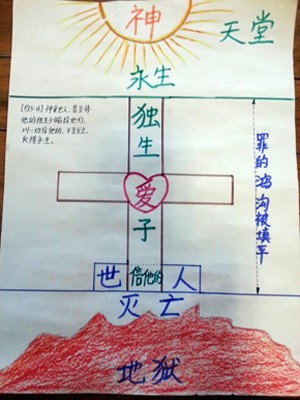 神
天堂
永生
[约3:16] 神爱世人,甚至将
他的独生子赐给他们,
叫一切信他的,不至灭亡,
反得永生。
独生爱子
罪的鸿沟被填平
世 信他的 人
灭亡
地狱